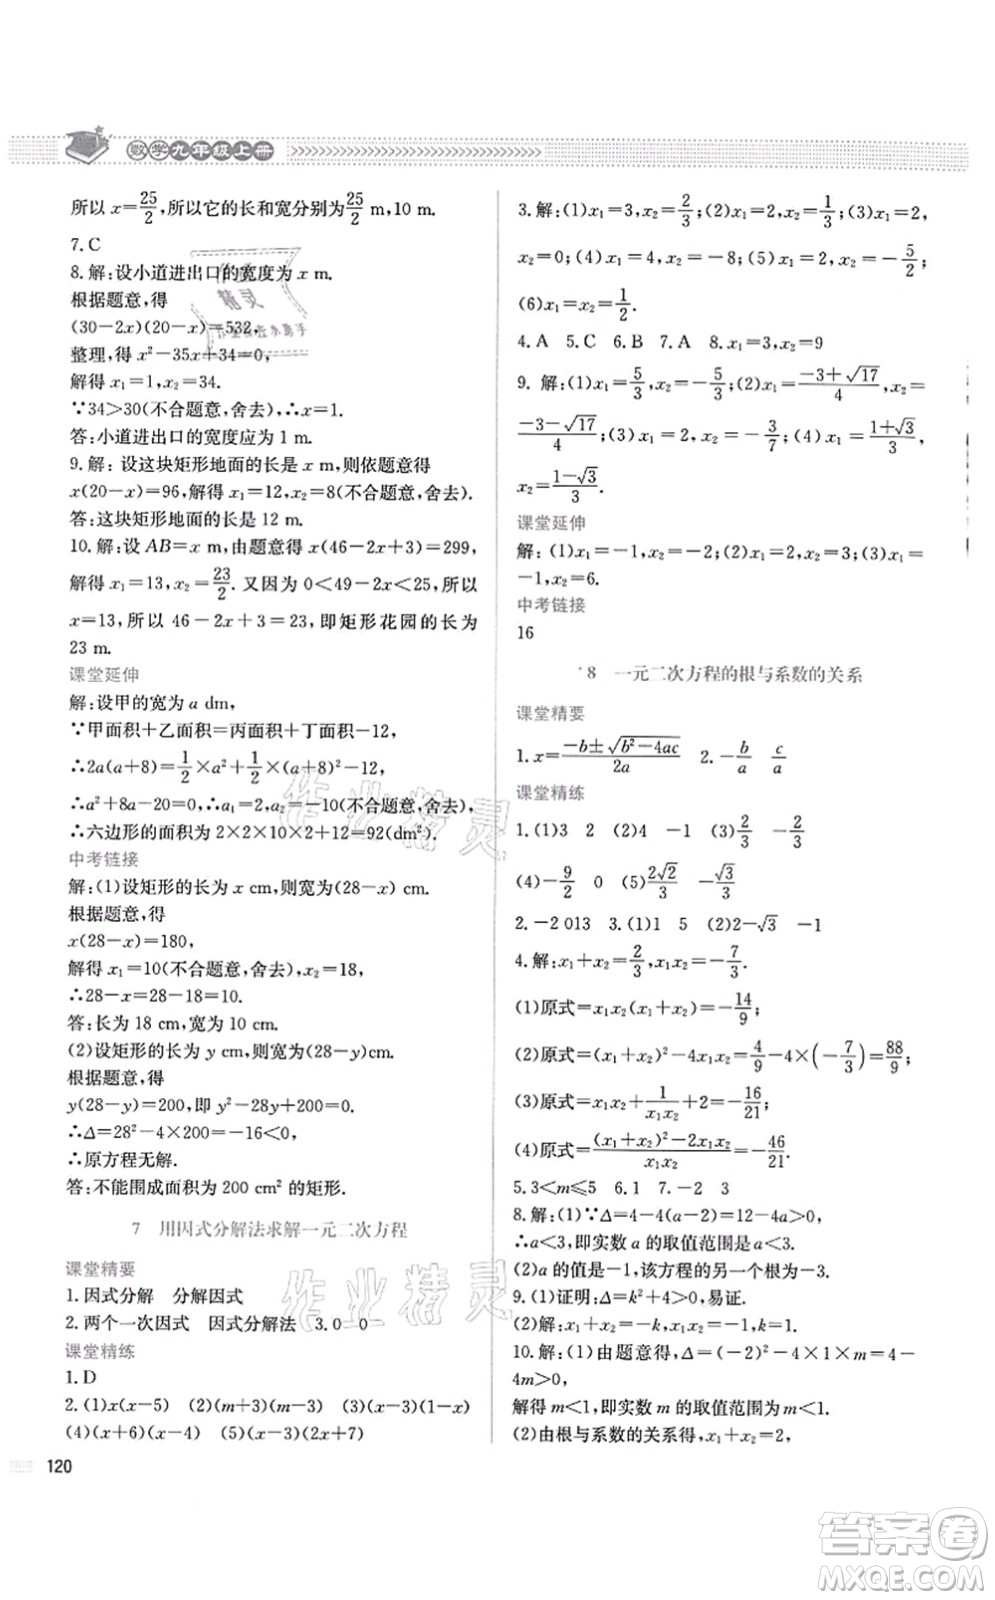 数学九年级上册
所以 x=25/2,所以它的长和宽分别为25/2 m,10 m.
7. C
8. 解:设小道进出口的宽度为 x m.
根据题意,得
(30-2x)(20-x)=532,
整理,得 x²-35x+34=0,
解得 x₁=1,x₂=34.
∵34>30(不合题意,舍去),∴x=1.
答:小道进出口的宽度应为 1 m.
9. 解:设这块矩形地面的长是 x m,则依题意得
x(20-x)=96,解得 x₁=12,x₂=8(不合题意,舍去).
答:这块矩形地面的长是 12 m.
10. 解:设 AB=x m,由题意得 x(46-2x+3)=299,
解得 x₁=13,x₂=23/2.又因为 0<49-2x<25,所以
x=13,所以 46-2x+3=23,即矩形花园的长为
23 m.
课堂延伸
解:设甲的宽为 a dm,
∵甲面积+乙面积=丙面积+丁面积-12,
∴2a(a+8)=1/2×a²+1/2×(a+8)²-12,
∴a²+8a-20=0,∴a₁=2,a₂=-10(不合题意,舍去),
∴六边形的面积为 2×2×2×10+12=92(dm²).
中考链接
解:(1)设矩形的长为 x cm,则宽为(28-x) cm.
根据题意,得
x(28-x)=180,
解得 x₁=10(不合题意,舍去),x₂=18,
∴28-x=28-18=10.
答:长为 18 cm,宽为 10 cm.
(2)设矩形的长为 y cm,则宽为(28-y) cm.
根据题意,得
y(28-y)=200,即 y²-28y+200=0.
∴Δ=28²-4×200=-16<0,
∴原方程无解.
答:不能围成面积为 200 cm² 的矩形.
7 用因式分解法求解一元二次方程
课堂精要
1. 因式分解 分解因式
2. 两个一次因式 因式分解法 3. 0 0
课堂精练
1. D
2. (1)x(x-5) (2)(m+3)(m-3) (3)(x-2)(1-x)
(4)(x+6)(x-4) (5)(2x-3)(x-1)
120
3. 解:(1)x₁=3,x₂=2/3;(2)x₁=2,x₂=1/3;(3)x₁=
x₂=0;(4)x₁=4,x₂=-8;(5)x₁=2,x₂=-5/2;
(6)x₁=x₂=1/2.
4. A 5. C 6. B 7. A 8. x₁=3,x₂=9
9. 解:(1)x₁=5/3,x₂=-5/3;(2)x₁=(-3+√17)/4,x₂=
(-3-√17)/4;(3)x₁=2,x₂=-3/7;(4)x₁=(1+√3)/3,
x₂=(1-√3)/3.
课堂延伸
解:(1)x₁=-1,x₂=-2;(2)x₁=2,x₂=3;(3)x₁=
-1,x₂=6.
中考链接
16
8 一元二次方程的根与系数的关系
课堂精要
1. x=(-b±√(b²-4ac))/2a 2. -b/a c/a
课堂精练
1. (1)3 2 (2)4 -1 (3)2/3 -2/3
(4)-9/2 0 (5)2√2/3 -√3/3
2. -2 013 3. (1)1 5 (2)2-√3 -1
4. 解:x₁+x₂=2/3,x₁x₂=-7/3.
(1)原式=x₁x₂(x₁+x₂)=-14/9;
(2)原式=(x₁+x₂)²-4x₁x₂=4/9-4×(-7/3)=88/9;
(3)原式=x₁x₂+1/x₁x₂+2=-16/21;
(4)原式=((x₁+x₂)²-2x₁x₂)/x₁x₂=-46/21.
5. 3<m≤5 6. 1 7. -2 2
8. 解:(1)∵Δ=4-4(a-2)=12-4a>0,
∴a<3,即实数 a 的取值范围是 a<3.
(2)a 的值是-1,该方程的另一根为-3.
9. (1)证明:Δ=k²+4>0,易证.
(2)解:x₁+x₂=-k,x₁x₂=-1,k=1.
10. 解:(1)由题意得,Δ=(-2)²-4×1×m=4-
4m>0,
解得 m<1,即实数 m 的取值范围是 m<1.
(2)由根与系数的关系得,x₁+x₂=2,
作业精灵
作业精灵
答案卷
MXQE.COM